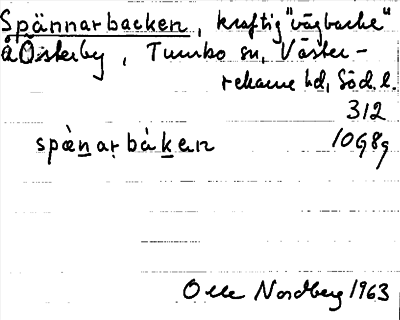 Spännarbacken, kraftig "vägbacke"
å Österby, Tumbo sn, Väster-
rekarne hd, Söd. l.
312
spànarbàken 10G8g
Olle Nordberg 1963